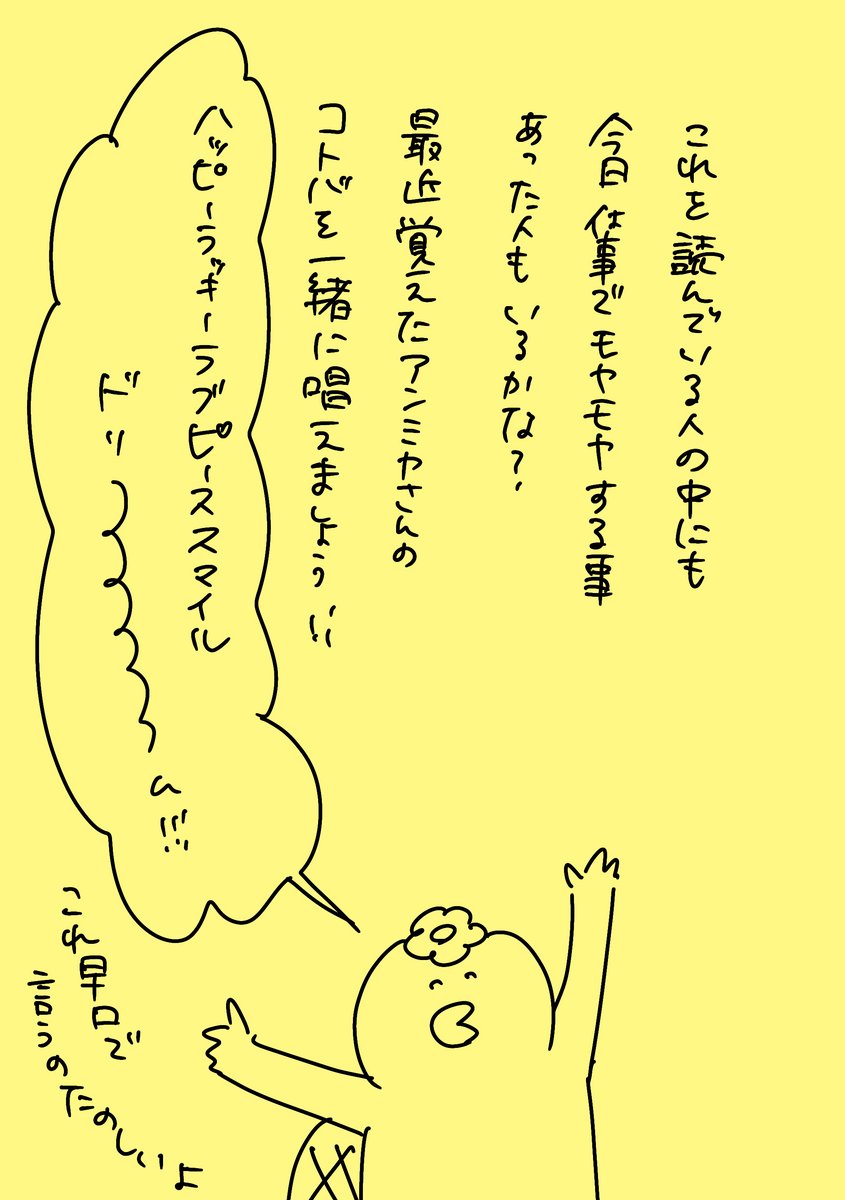 これを読んでいる人の中にも
今日仕事でモヤモヤする事
あった人もいるかな?
最近覚えたアンミカさんの
コトバを一緒に唱えましょう!!
ハッピーラッキーラブピーススマイル
ドリ〜〜〜〜〜ム!!!
これ早口で
言うのたのしいよ